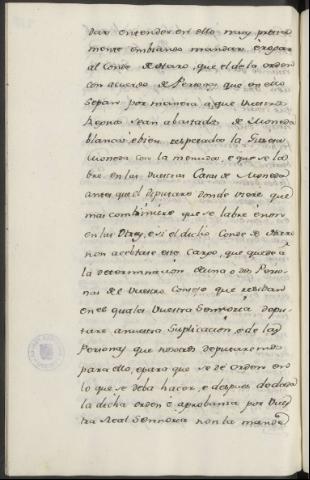 dar entender en ello muy presta
mente embiando mandar, e rogar
al Conde de Haro, que el de la orden
con acuerdo de Personas que en ello
sepan por manera, que vuestros
Reynos sean abastados de Moneda
blanca, e bien respetados la gruesa
moneda con la menuda, e que se la
bre en las vuestras Casas de Moneda
antes que el deputare donde viere que
mas combiniere que se labre e non
en las otras, e si el dicho Conde de Haro
non aceptase este cargo, que quede a
la determinacion de una o dos Perso
nas de el vuestro Consejo que residan
en el quales Vuestra Señoria depu
tare a nuestra Suplicacion, e de las
Personas que nosotros deputaremos
para ello, e para que se dé orden en
lo que se deba hacer, e despues de dada
la dicha orden é aprobada por Vues
tra Real Señoria non la mande